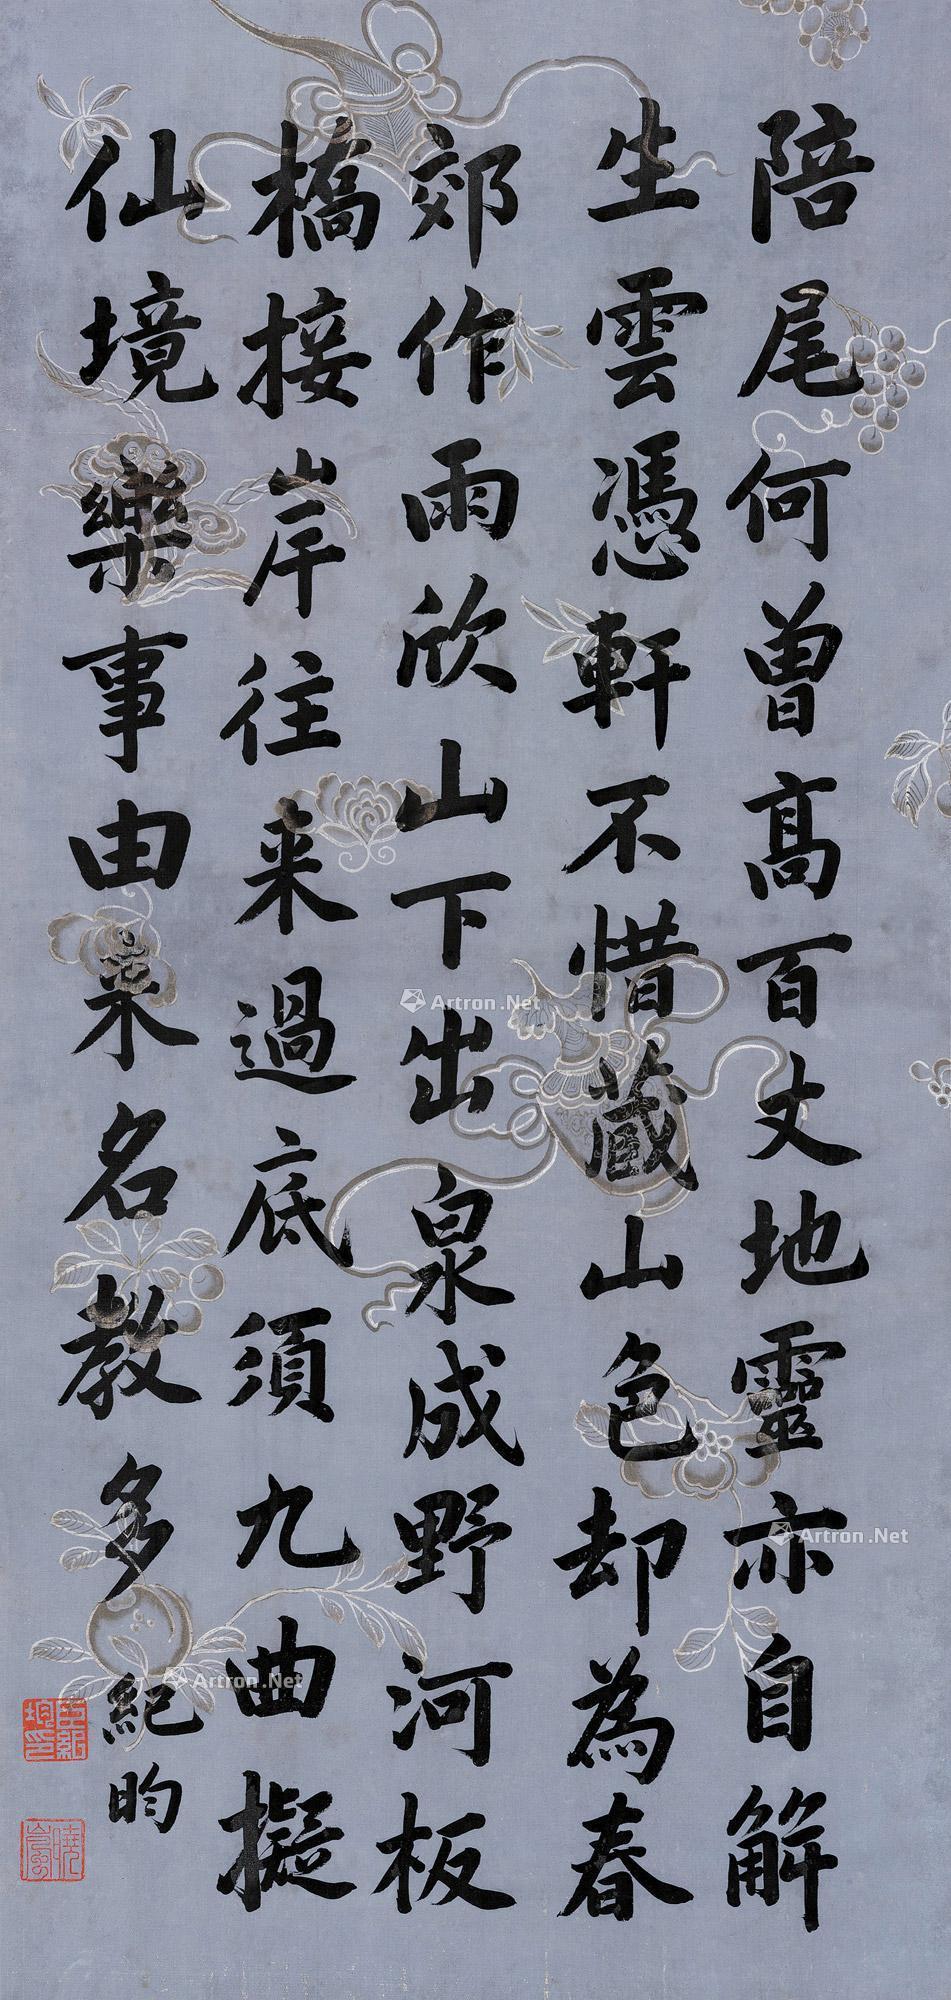 陪尾何曽高百丈地靈亦自解
生雲憑軒不惜藏山色却為春
郊作雨欣山下出泉成野河板
橋接岸往来過底須九曲擬
仙境樂事由来名教多
紀昀
臣紀昀印
曉嵐
Artron.Net
Artron.Net
Artron.Net